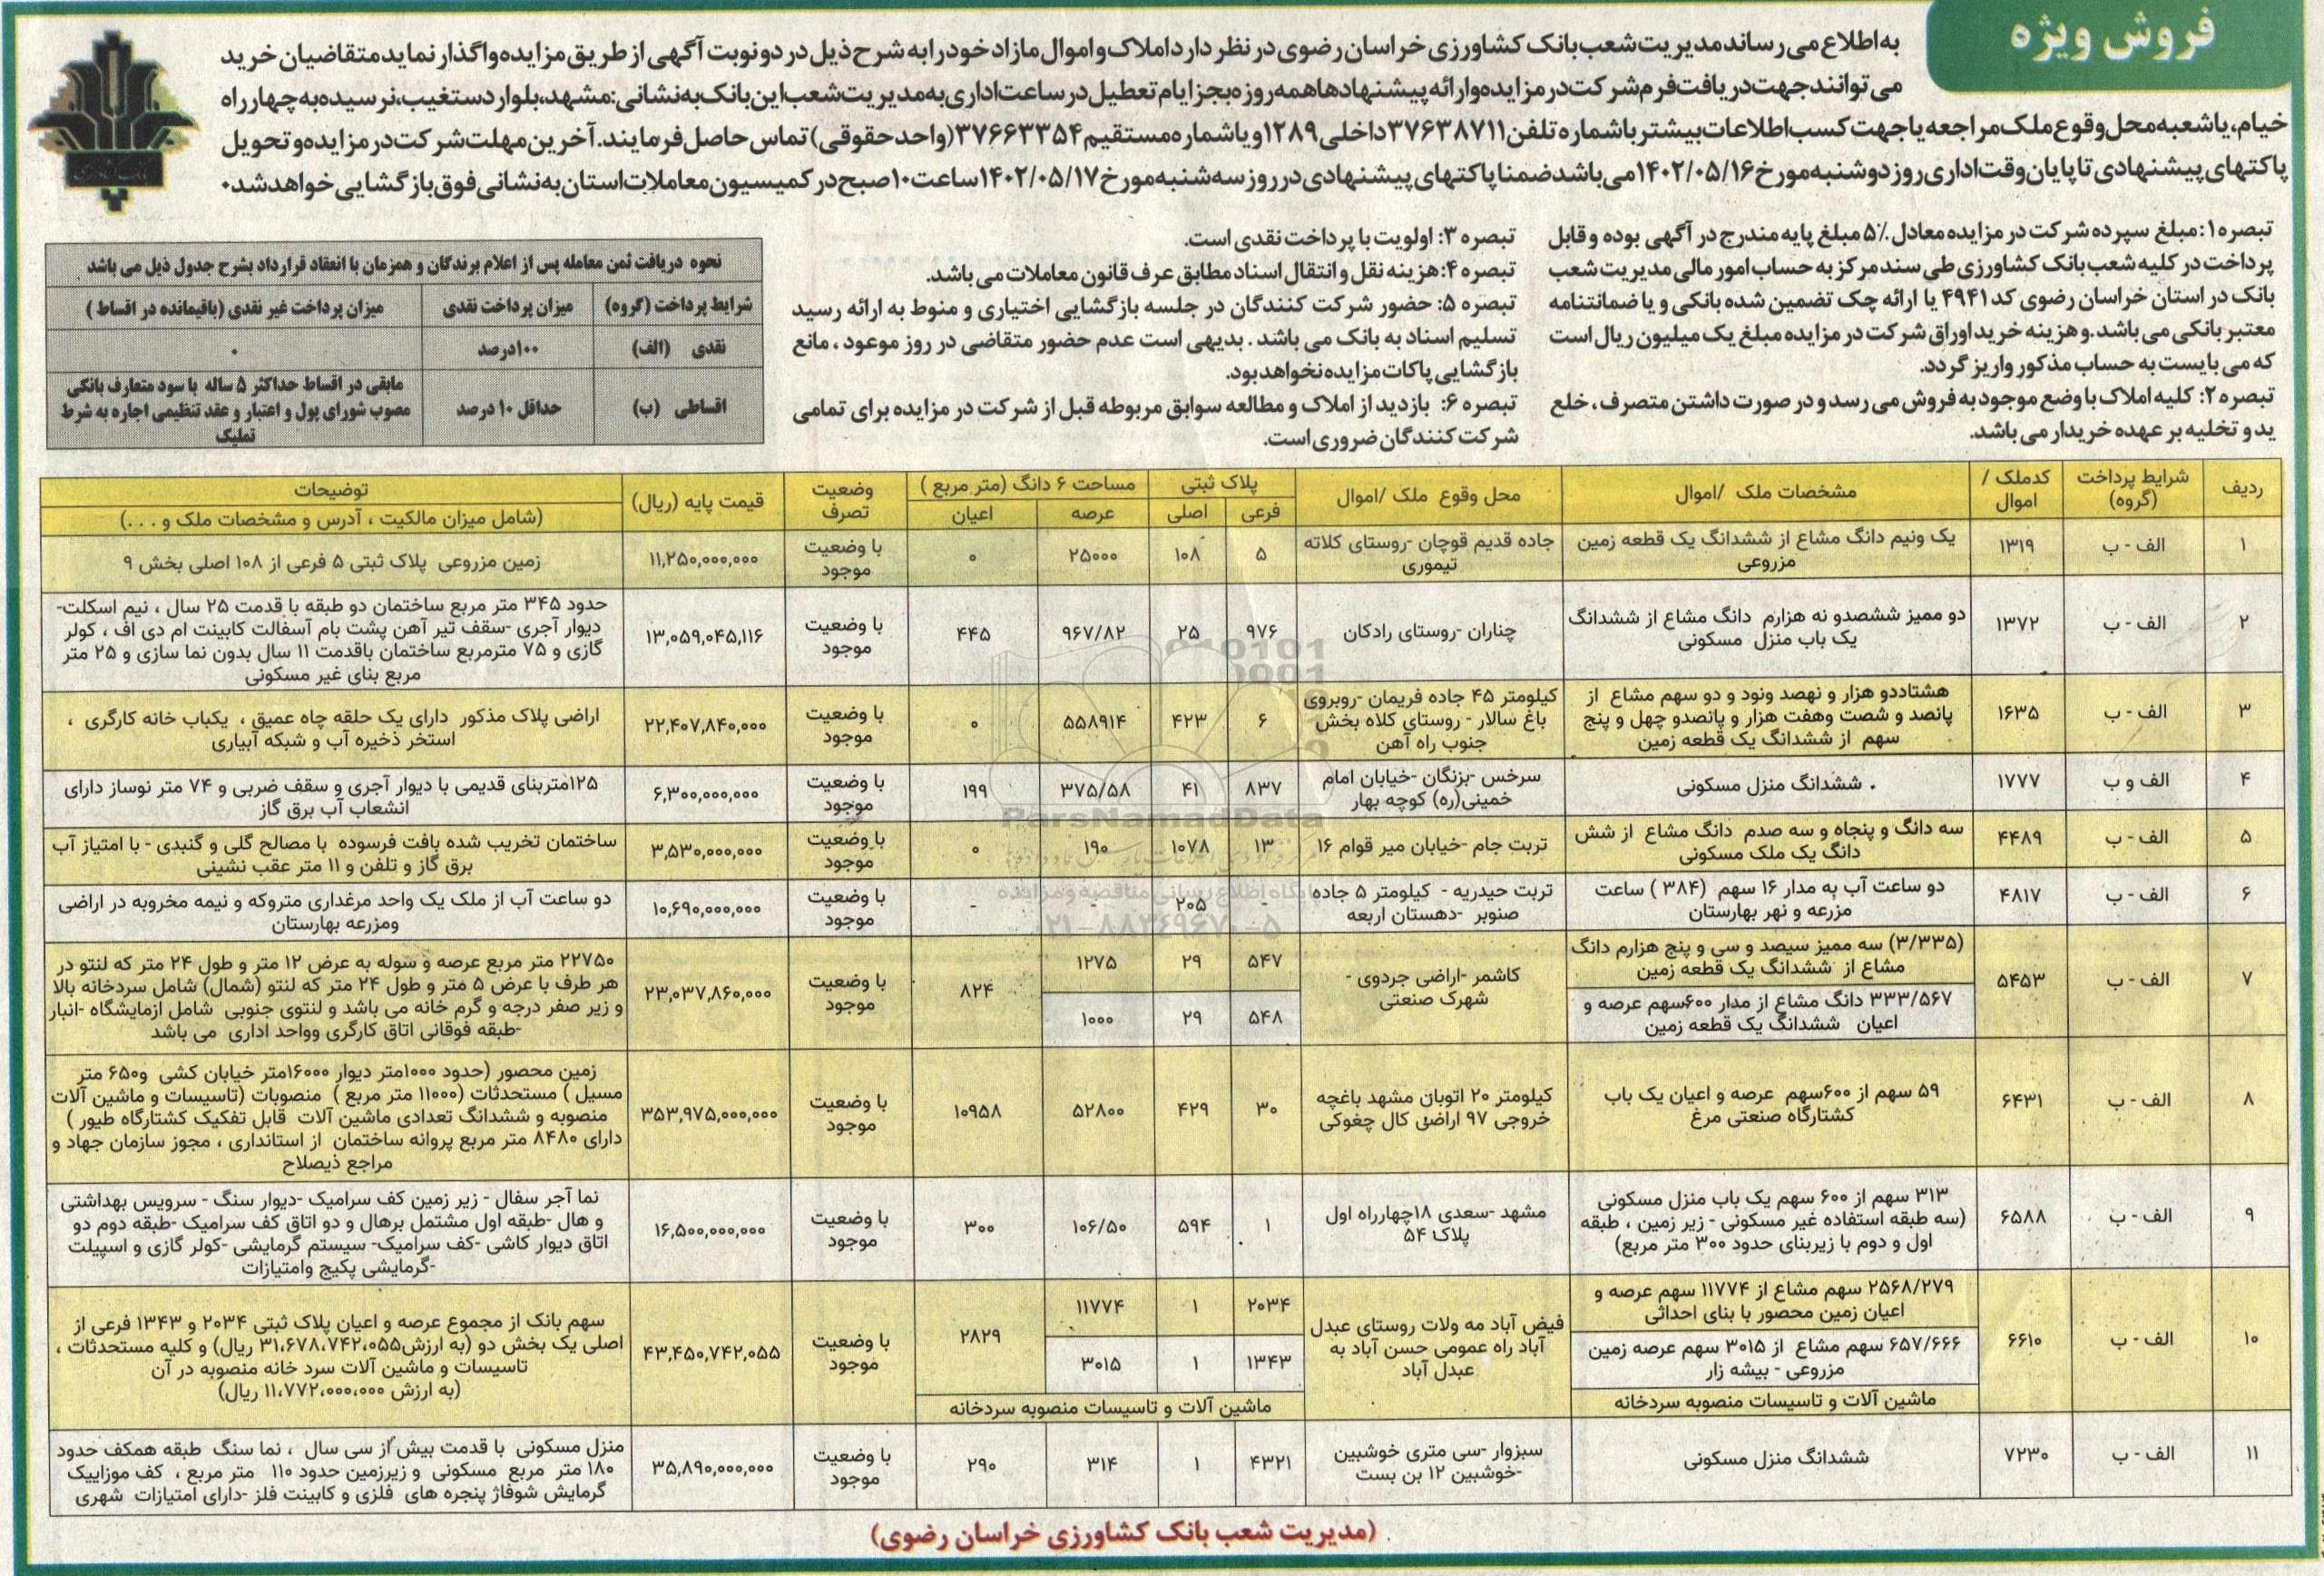 فروش ویژه
به اطلاع می رساند مدیریت شعب بانک کشاورزی خراسان رضوی در نظر دارد املاک و اموال مازاد خود را به شرح ذیل در دو نوبت آگهی از طریق مزایده واگذار نماید متقاضیان خرید
می توانند جهت دریافت فرم شرکت در مزایده و ارائه پیشنهادها همه روزه بجز ایام تعطیل در ساعت اداری به مدیریت شعب این بانک به نشانی: مشهد، بلوار دستغیب، نرسیده به چهارراه
خیام، یا شعبه محل وقوع ملک مراجعه یا جهت کسب اطلاعات بیشتر با شماره تلفن ۳۷۶۳۸۷۱۱ داخلی ۱۲۸۹ و یا شماره مستقیم ۳۷۶۶۳۳۵۴ (واحد حقوقی) تماس حاصل فرمایند. آخرین مهلت شرکت در مزایده و تحویل
پاکتهای پیشنهادی تا پایان وقت اداری روز دوشنبه مورخ ۱۴۰۲/۰۵/۱۶ می باشد ضمنا پاکتهای پیشنهادی در روز سه شنبه مورخ ۱۴۰۲/۰۵/۱۷ ساعت ۱۰ صبح در کمیسیون معاملات استان به نشانی فوق بازگشایی خواهد شد.
تبصره ۱: مبلغ سپرده شرکت در مزایده معادل ۵٪ مبلغ پایه مندرج در آگهی بوده و قابل
پرداخت در کلیه شعب بانک کشاورزی طی سند مرکز به حساب امور مالی مدیریت شعب
بانک در استان خراسان رضوی کد ۴۹۴۱ یا ارائه چک تضمین شده بانکی و یا ضمانتنامه
معتبر بانکی می باشد. و هزینه خرید اوراق شرکت در مزایده مبلغ یک میلیون ریال است
که می بایست به حساب مذکور واریز گردد.
تبصره ۲: کلیه املاک با وضع موجود به فروش می رسد و در صورت داشتن متصرف، خلع
ید و تخلیه بر عهده خریدار می باشد.
تبصره ۳: اولویت با پرداخت نقدی است.
تبصره ۴: هزینه نقل و انتقال اسناد مطابق عرف قانون معاملات می باشد.
تبصره ۵: حضور شرکت کنندگان در جلسه بازگشایی اختیاری و منوط به ارائه رسید
تسلیم اسناد به بانک می باشد. بدیهی است عدم حضور متقاضی در روز موعود، مانع
بازگشایی پاکات مزایده نخواهد بود.
تبصره ۶: بازدید از املاک و مطالعه سوابق مربوطه قبل از شرکت در مزایده برای تمامی
شرکت کنندگان ضروری است.
نحوه دریافت ثمن معامله پس از اعلام برندگان و همزمان با انعقاد قرارداد بشرح جدول ذیل می باشد
شرایط پرداخت (گروه) میزان پرداخت نقدی میزان پرداخت غیر نقدی (باقیمانده در اقساط)
نقدی (الف) ۱۰۰درصد ۰
اقساطی (ب) حداقل ۱۰ درصد مابقی در اقساط حداکثر ۵ ساله با سود متعارف بانکی
مصوب شورای پول و اعتبار و عقد تنظیمی اجاره به شرط
تملیک
ردیف شرایط پرداخت (گروه) کدملک / اموال مشخصات ملک /اموال محل وقوع ملک /اموال پلاک ثبتی مساحت ۶ دانگ (متر مربع) وضعیت تصرف قیمت پایه (ریال) توضیحات
فرعی اصلی عرصه اعیان (شامل میزان مالکیت ، آدرس و مشخصات ملک و ...)
۱ الف - ب ۱۳۱۹ یک ونیم دانگ مشاع از ششدانگ یک قطعه زمین مزروعی جاده قدیم قوچان -روستای کلاته تیموری ۵ ۱۰۸ ۲۵۰۰۰ ۰ با وضعیت موجود ۱۱,۲۵۰,۰۰۰,۰۰۰ زمین مزروعی پلاک ثبتی ۵ فرعی از ۱۰۸ اصلی بخش ۹
۲ الف - ب ۱۳۷۲ دو ممیز ششصدو نه هزارم دانگ مشاع از ششدانگ یک باب منزل مسکونی چناران -روستای رادکان ۹۷۶ ۲۵ ۹۶۷/۸۲ ۴۴۵ با وضعیت موجود ۱۳,۰۵۹,۰۴۵,۱۱۶ حدود ۳۴۵ متر مربع ساختمان دو طبقه با قدمت ۲۵ سال ، نیم اسکلت-
دیوار آجری -سقف تیر آهن پشت بام آسفالت کابینت ام دی اف ، کولر
گازی و ۷۵ مترمربع ساختمان باقدمت ۱۱ سال بدون نما سازی و ۲۵ متر
مربع بنای غیر مسکونی
۳ الف - ب ۱۶۳۵ هشتاددو هزار و نهصد ونود و دو سهم مشاع از پانصد و شصت وهفت هزار و پانصدو چهل و پنج سهم از ششدانگ یک قطعه زمین کیلومتر ۴۵ جاده فریمان -روبروی باغ سالار - روستای کلاه بخش جنوب راه آهن ۶ ۴۲۳ ۵۵۸۹۱۴ ۰ با وضعیت موجود ۲۲,۴۰۷,۸۴۰,۰۰۰ اراضی پلاک مذکور دارای یک حلقه چاه عمیق ، یکباب خانه کارگری ،
استخر ذخیره آب و شبکه آبیاری
۴ الف و ب ۱۷۷۷ ششدانگ منزل مسکونی سرخس -بزنگان -خیابان امام خمینی(ره) کوچه بهار ۸۳۷ ۴۱ ۳۷۵/۵۸ ۱۹۹ با وضعیت موجود ۶,۳۰۰,۰۰۰,۰۰۰ ۱۲۵متربنای قدیمی با دیوار آجری و سقف ضربی و ۷۴ متر نوساز دارای
انشعاب آب برق گاز
۵ الف - ب ۴۴۸۹ سه دانگ و پنجاه و سه صدم دانگ مشاع از شش دانگ یک ملک مسکونی تربت جام -خیابان میر قوام ۱۶ ۱۳ ۱۰۷۸ ۱۹۰ ۰ با وضعیت موجود ۳,۵۳۰,۰۰۰,۰۰۰ ساختمان تخریب شده بافت فرسوده با مصالح گلی و گنبدی - با امتیاز آب
برق گاز و تلفن و ۱۱ متر عقب نشینی
۶ الف - ب ۴۸۱۷ دو ساعت آب به مدار ۱۶ سهم (۳۸۴) ساعت مزرعه و نهر بهارستان تربت حیدریه - کیلومتر ۵ جاده صنوبر -دهستان اربعه - ۲۰۵ - - با وضعیت موجود ۱۰,۶۹۰,۰۰۰,۰۰۰ دو ساعت آب از ملک یک واحد مرغداری متروکه و نیمه مخروبه در اراضی
ومزرعه بهارستان
۷ الف - ب ۵۴۵۳ (۳/۳۳۵) سه ممیز سیصد و سی و پنج هزارم دانگ مشاع از ششدانگ یک قطعه زمین کاشمر -اراضی جردوی - شهرک صنعتی ۵۴۷ ۲۹ ۱۲۷۵ ۸۲۴ با وضعیت موجود ۲۳,۰۳۷,۸۶۰,۰۰۰ ۲۲۷۵۰ متر مربع عرصه و سوله به عرض ۱۲ متر و طول ۲۴ متر که لنتو در
هر طرف با عرض ۵ متر و طول ۲۴ متر که لنتو (شمال) شامل سردخانه بالا
و زیر صفر درجه و گرم خانه می باشد و لنتوی جنوبی شامل ازمایشگاه -انبار
-طبقه فوقانی اتاق کارگری وواحد اداری می باشد
۳۳۳/۵۶۷ دانگ مشاع از مدار ۶۰۰سهم عرصه و اعیان ششدانگ یک قطعه زمین ۵۴۸ ۲۹ ۱۰۰۰
۸ الف - ب ۶۴۳۱ ۵۹ سهم از ۶۰۰سهم عرصه و اعیان یک باب کشتارگاه صنعتی مرغ کیلومتر ۲۰ اتوبان مشهد باغچه خروجی ۹۷ اراضی کال چغوکی ۳۰ ۴۲۹ ۵۲۸۰۰ ۱۰۹۵۸ با وضعیت موجود ۳۵۳,۹۷۵,۰۰۰,۰۰۰ زمین محصور (حدود ۱۰۰۰متر دیوار ۱۶۰۰۰متر خیابان کشی و۶۵۰ متر
مسیل ) مستحدثات (۱۱۰۰۰ متر مربع ) منصوبات (تاسیسات و ماشین آلات
منصوبه و ششدانگ تعدادی ماشین آلات قابل تفکیک کشتارگاه طیور )
دارای ۸۴۸۰ متر مربع پروانه ساختمان از استانداری ، مجوز سازمان جهاد و
مراجع ذیصلاح
۹ الف - ب ۶۵۸۸ ۳۱۳ سهم از ۶۰۰ سهم یک باب منزل مسکونی (سه طبقه استفاده غیر مسکونی - زیر زمین ، طبقه اول و دوم با زیربنای حدود ۳۰۰ متر مربع) مشهد -سعدی ۱۸چهارراه اول پلاک ۵۴ ۱ ۵۹۴ ۱۰۶/۵۰ ۳۰۰ با وضعیت موجود ۱۶,۵۰۰,۰۰۰,۰۰۰ نما آجر سفال - زیر زمین کف سرامیک -دیوار سنگ - سرویس بهداشتی
و هال -طبقه اول مشتمل برهال و دو اتاق کف سرامیک -طبقه دوم دو
اتاق دیوار کاشی -کف سرامیک- سیستم گرمایشی -کولر گازی و اسپیلت
-گرمایشی پکیج وامتیازات
۱۰ الف - ب ۶۶۱۰ ۲۵۶۸/۲۷۹ سهم مشاع از ۱۱۷۷۴ سهم عرصه و اعیان زمین محصور با بنای احداثی فیض آباد مه ولات روستای عبدل آباد راه عمومی حسن آباد به عبدل آباد ۲۰۳۴ ۱ ۱۱۷۷۴ ۲۸۲۹ با وضعیت موجود ۴۳,۴۵۰,۷۴۲,۰۵۵ سهم بانک از مجموع عرصه و اعیان پلاک ثبتی ۲۰۳۴ و ۱۳۴۳ فرعی از
اصلی یک بخش دو (به ارزش۳۱،۶۷۸،۷۴۲،۰۵۵ ریال) و کلیه مستحدثات ،
تاسیسات و ماشین آلات سرد خانه منصوبه در آن
(به ارزش ۱۱،۷۷۲،۰۰۰،۰۰۰ ریال)
۶۵۷/۶۶۶ سهم مشاع از ۳۰۱۵ سهم عرصه زمین مزروعی - بیشه زار ۱۳۴۳ ۱ ۳۰۱۵
ماشین آلات و تاسیسات منصوبه سردخانه ماشین آلات و تاسیسات منصوبه سردخانه
۱۱ الف - ب ۷۲۳۰ ششدانگ منزل مسکونی سبزوار -سی متری خوشبین -خوشبین ۱۲ بن بست ۴۳۲۱ ۱ ۳۱۴ ۲۹۰ با وضعیت موجود ۳۵,۸۹۰,۰۰۰,۰۰۰ منزل مسکونی با قدمت بیش از سی سال ، نما سنگ طبقه همکف حدود
۱۸۰ متر مربع مسکونی و زیرزمین حدود ۱۱۰ متر مربع ، کف موزاییک
گرمایش شوفاژ پنجره های فلزی و کابینت فلز -دارای امتیازات شهری
(مدیریت شعب بانک کشاورزی خراسان رضوی)
ParsNamadData
پایگاه اطلاع رسانی مناقصه و مزایده
۰۲۱-۸۸۳۴۹۶۷۰-۵